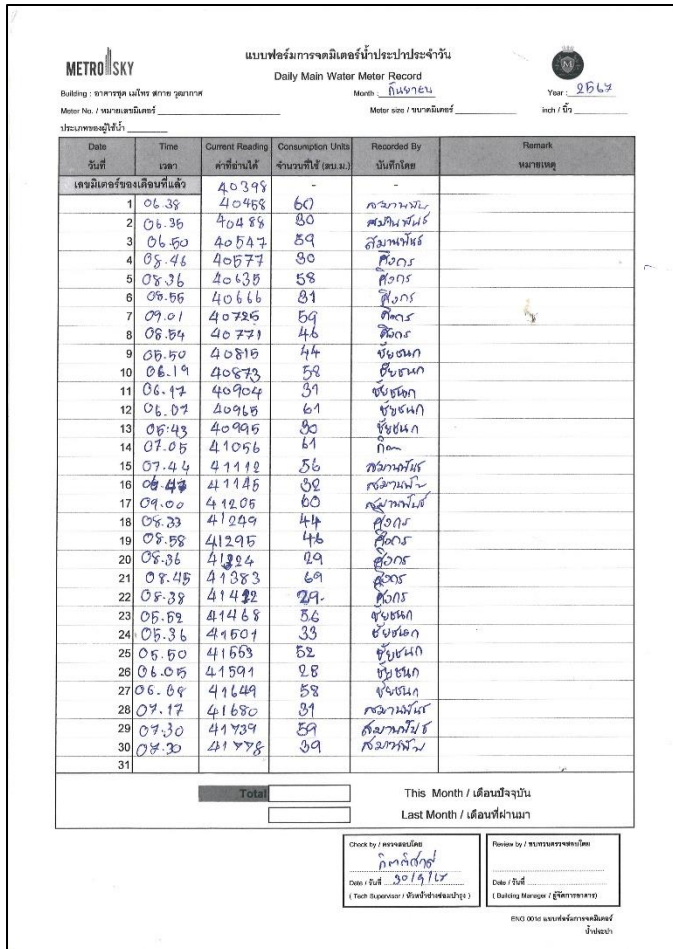 METRO SKY
แบบฟอร์มการจดมิเตอร์น้ำประปาประจำวัน
Daily Main Water Meter Record
M
Building : อาคารชุด เมโทร สกาย วุฒากาศ Month : กันยายน Year : 2567
Meter No. / หมายเลขมิเตอร์ Meter size / ขนาดมิเตอร์ inch / นิ้ว
ประเภทของผู้ใช้น้ำ
Date Time Current Reading Consumption Units Recorded By Remark
วันที่ เวลา ค่าที่อ่านได้ จำนวนที่ใช้ (ลบ.ม.) บันทึกโดย หมายเหตุ
เลขมิเตอร์ของเดือนที่แล้ว 40398 - -
1 06.38 40458 60 สมานพันธ์
2 06.35 40488 30 สมานพันธ์
3 06.50 40547 59 สมานพันธ์
4 08.46 40577 30 ศังกร
5 08.36 40635 58 ศังกร
6 08.56 40666 31 ศังกร
7 09.01 40725 59 ศังกร
8 08.54 40771 46 ศังกร
9 05.50 40815 44 ชัยชนก
10 06.19 40873 58 ชัยชนก
11 06.17 40904 31 ชัยชนก
12 06.07 40965 61 ชัยชนก
13 05:43 40995 30 ชัยชนก
14 07.05 41056 61
15 07.44 41112 56 สมานพันธ์
16 41145 32 สมานพันธ์
17 09.00 41205 60 สมานพันธ์
18 08.33 41249 44 ศังกร
19 08.58 41295 46 ศังกร
20 08.36 41324 29 ศังกร
21 08.45 41383 69 ศังกร
22 08.38 41412 29 ศังกร
23 05.52 41468 56 ชัยชนก
24 05.36 41501 33 ชัยชนก
25 05.50 41553 52 ชัยชนก
26 06.05 41591 28 ชัยชนก
27 06.08 41649 58 ชัยชนก
28 07.17 41680 31 สมานพันธ์
29 07.30 41739 59 สมานพันธ์
30 07.30 41778 39 สมานพันธ์
31
Total This Month / เดือนปัจจุบัน
Last Month / เดือนที่ผ่านมา
Check by / ตรวจสอบโดย
Date / วันที่ 30/9/67
( Tech Supervisor / หัวหน้าช่างซ่อมบำรุง )
Review by / ทบทวนตรวจสอบโดย
Date / วันที่
( Building Manager / ผู้จัดการอาคาร)
ENG 001d แบบฟอร์มการจดมิเตอร์
น้ำประปา